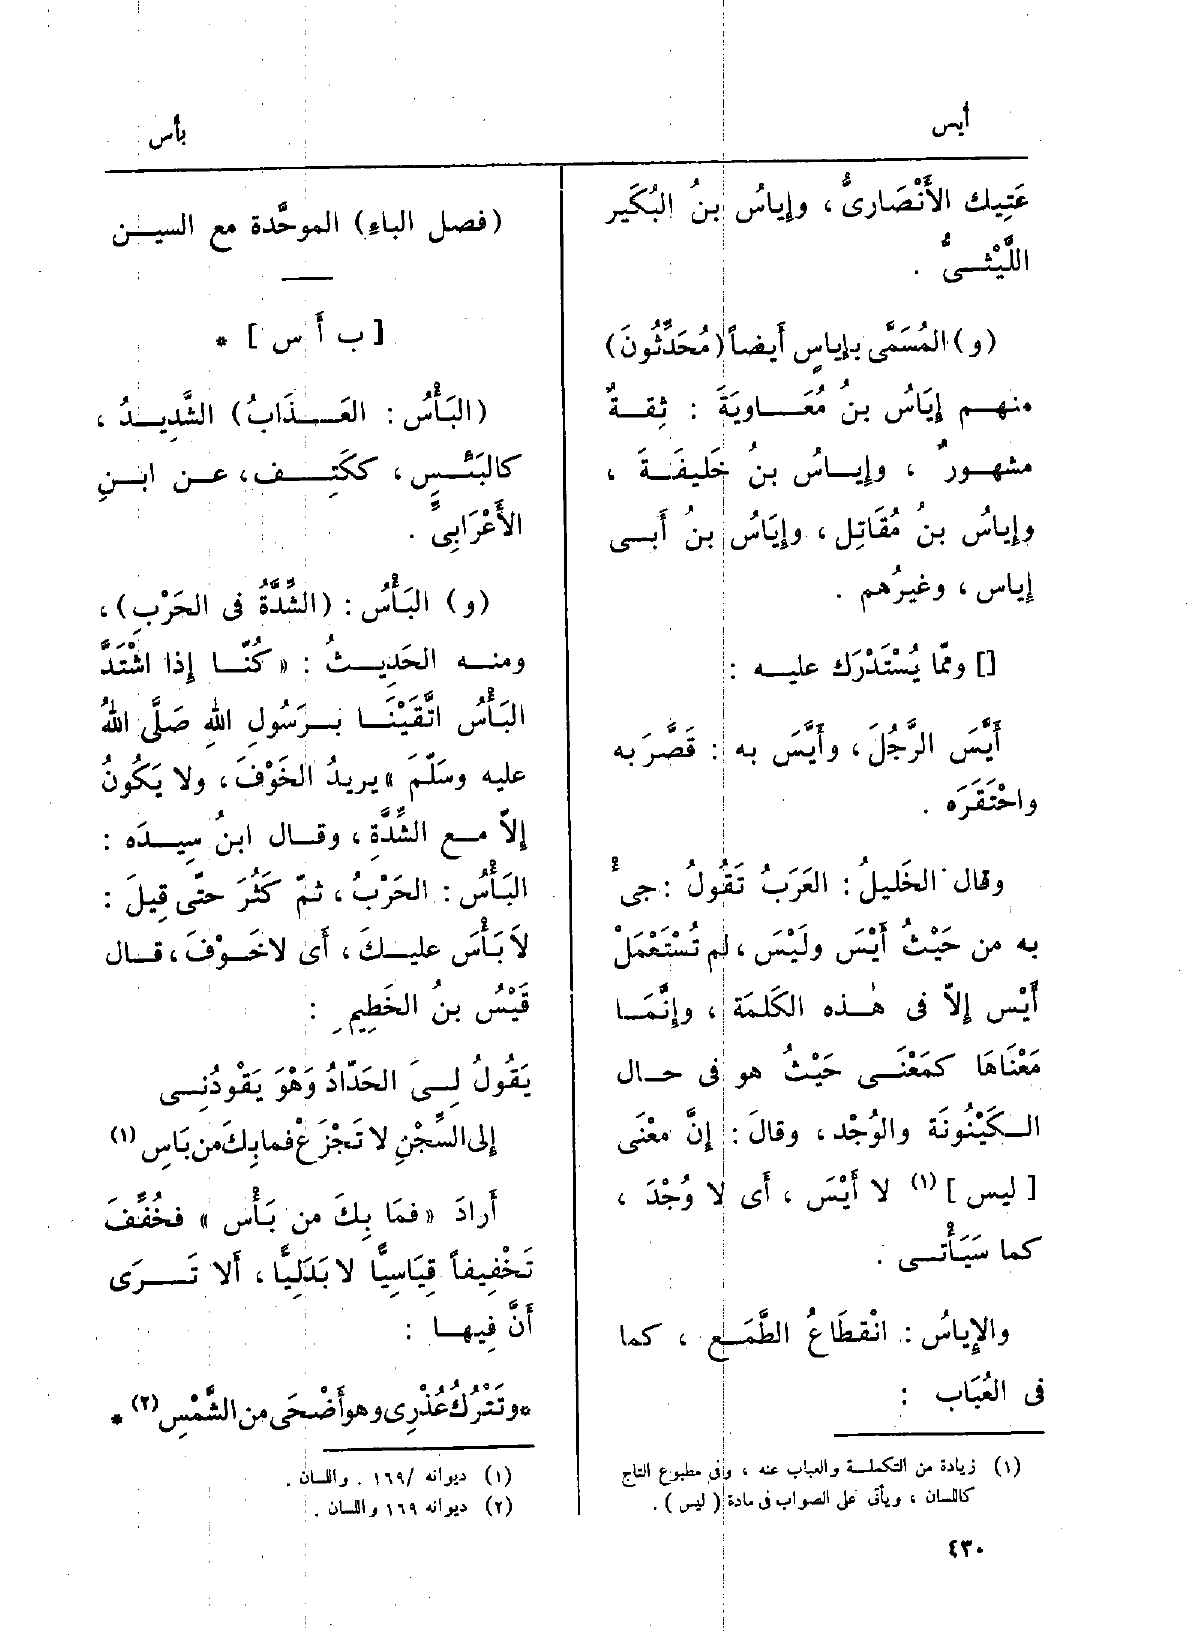 أيس
بأس
عَتِيك الأَنْصَارىُّ ، وإياسُ بنُ البُكَير
اللَّيْثىُّ .
(و) المُسَمَّى بإياسٍ أيضاً (مُحَدِّثُونَ)
منهم إِيَاسُ بنُ مُعَاويَةَ : ثِقةٌ
مشهورٌ ، وإياسُ بنُ خَليفَةَ ،
وإياسُ بنُ مُقَاتِل ، وإيَاسُ بنُ أَبى
إياس ، وغيرُهم .
[] وممّا يُسْتَدْرَك عليه :
أَيَّسَ الرَّجُلَ ، وأَيَّسَ به : قَصَّرَ به
واحْتَقَرَه .
وقال الخَليلُ : العَرَبُ تَقُولُ : جىْ
به من حَيْثُ أَيْسَ ولَيْسَ ، لم تُسْتَعْمَلْ
أَيْس إلاّ فى هٰذه الكَلمَة ، وإنَّمَا
مَعْنَاهَا كمَعْنَى حَيْثُ هو فى حال
الكَيْنُونَة والوُجْد ، وقالَ : إنَّ معْنَى
[ ليس ] (١) لا أَيْسَ ، أى لا وُجْدَ ،
كما سَيَأْتى .
والإياسُ : انْقطَاعُ الطَّمَع ، كما
فى العُبَاب :
(١) زيادة من التكملة والعباب عنه ، وفى مطبوع التاج
كاللسان ، ويأتى على الصواب فى مادة ( ليس ) .
(فصل الباءِ) الموحَّدة مع السين
[ ب أَ س ] *
(البَأْسُ : العَذَابُ) الشَّدِيدُ ،
كالبَئِْسِ ، ككَتِف ، عن ابنِ
الأَعْرَابِىِّ .
(و) البَأْسُ : (الشِّدَّةُ فى الحَرْبِ) ،
ومنه الحَدِيثُ : « كُنّا إِذا اشْتَدَّ
البَأْسُ اتَّقَيْنَا بِرَسُولِ اللهِ صَلَّى اللهُ
عليه وسَلّمَ » يريدُ الخَوْفَ ، ولا يَكُونُ
إلاّ مع الشِّدَّةِ ، وقال ابنُ سِيدَه :
البَأْسُ : الحَرْبُ ، ثمّ كَثُرَ حتّى قِيلَ :
لاَ بَأْسَ عليكَ ، أَى لاخَوْفَ ، قال
قَيْسُ بنُ الخَطِيمِ :
يَقُولُ لِىَ الحَدّادُ وَهْوَ يَقُودُنِى
إلى السِّجْنِ لا تَجْزَعْ فما بِكَ من بَاسِ (١)
أَرادَ « فمَا بِكَ من بَأْس » فخُفِّفَ
تَخْفِيفاً قِيَاسِيًّا لا بَدَلِيًّا ، أَلا تَرَى
أَنَّ فِيها :
* وتَتْرُكُ عُذْرِى وهو أَضْحَى من الشَّمْسِ (٢) *
(١) ديوانه /١٦٩ . واللسان .
(٢) ديوانه ١٦٩ واللسان .
٤٣٠